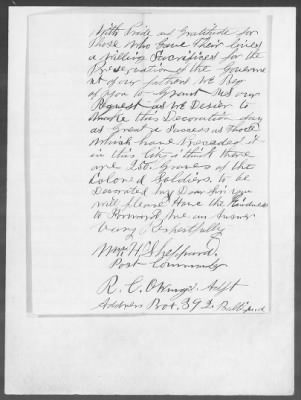 With Pride as Gratitude for
those who Gave Their Lives
a Willing Sacrifice for the
Preservation of the Governme
nt of our fathers We Beg
of you to Grant us our
Request as We Desier to
Make this Decoration day
as Great a Success as those
Which have Preceaded it
in this City I think there
are 250. Graves of the
Colored Soldiers to be
Decorated my Dear Sir you
will please Have the Kindness
to Forward me an Answer
Very Respectfully
Wm. H. Sheppard.
Post Commander
R. C. Adjt
Address Box. 392. Balto md